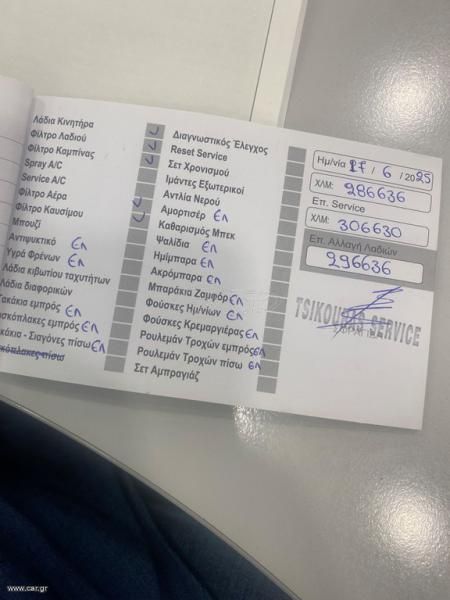 Λάδια Κινητήρα
Φίλτρο Λαδιού
Φίλτρο Καμπίνας
Spray A/C
Service A/C
Φίλτρο Αέρα
Φίλτρο Καυσίμου
Μπουζί
Αντιψυκτικό ελ
Υγρά Φρένων ελ
Λάδια κιβωτίου ταχυτήτων
Λάδια διαφορικών
Τακάκια εμπρός ελ
σκόπλακες εμπρός ελ
κάκια - Σιαγόνες πίσω ελ
κόπλακες πίσω
Διαγνωστικός Έλεγχος
Reset Service
Σετ Χρονισμού
Ιμάντες Εξωτερικοί
Αντλία Νερού
Αμορτισέρ ελ
Καθαρισμός Μπεκ
Ψαλίδια ελ
Ημίμπαρα ελ
Ακρόμπαρα ελ
Μπαράκια Ζαμφόρ ελ
Φούσκες Ημ/νίων ελ
Φούσκες Κρεμαργιέρας ελ
Ρουλεμάν Τροχών εμπρός ελ
Ρουλεμάν Τροχών πίσω ελ
Σετ Αμπραγιάζ
Ημ/νία 27 / 6 / 2025
ΧΛΜ: 286636
Επ. Service
ΧΛΜ: 306630
Επ. Αλλαγή Λαδιών
296636
TSIKOU SERVICE
www.car.gr